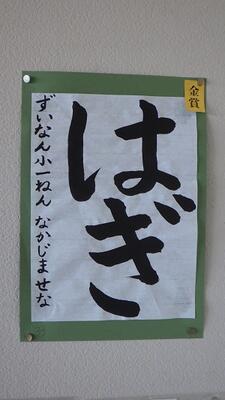 金賞
はぎ
ずいなん小一ねん なかじま せな